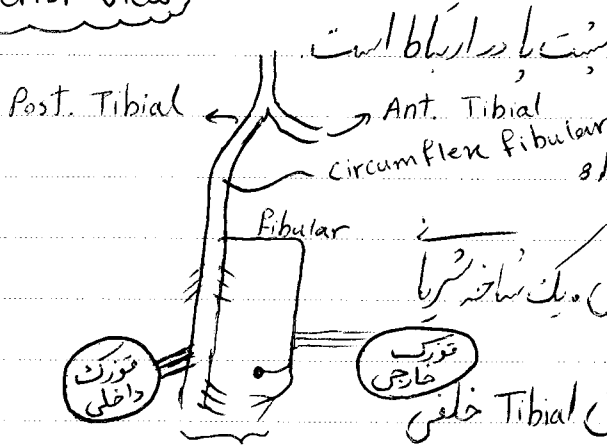 View
پشت پا در ارتباط است.
Post. Tibial
Ant. Tibial
Circumflex fibular
fibular
و یک شاخه شریا
قوزک داخلی
قوزک خارجی
Tibial خلفی